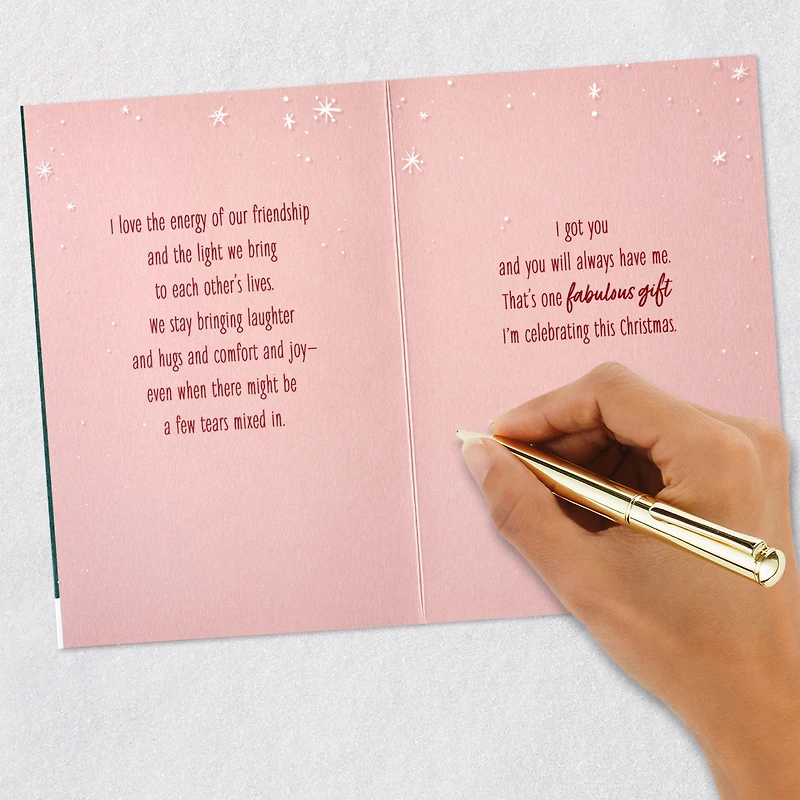 I love the energy of our friendship
and the light we bring
to each other's lives.
We stay bringing laughter
and hugs and comfort and joy—
even when there might be
a few tears mixed in.
I got you
and you will always have me.
That's one fabulous gift
I'm celebrating this Christmas.